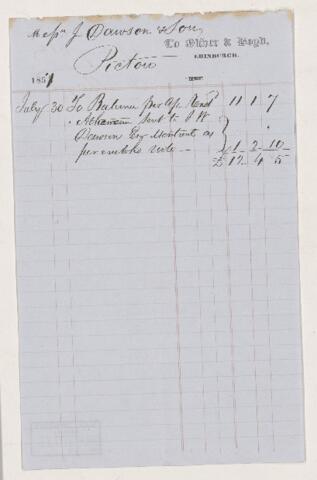 Messrs J. Dawson & Son,
To Oliver & Boyd,
EDINBURGH.
Pictou
1851
July 30 To Balance per a/c Rend 11 1 7
" Athenæum sent to J W
Dawson Esq Montreal as
per note - 1 2 10
£ 12 4 5